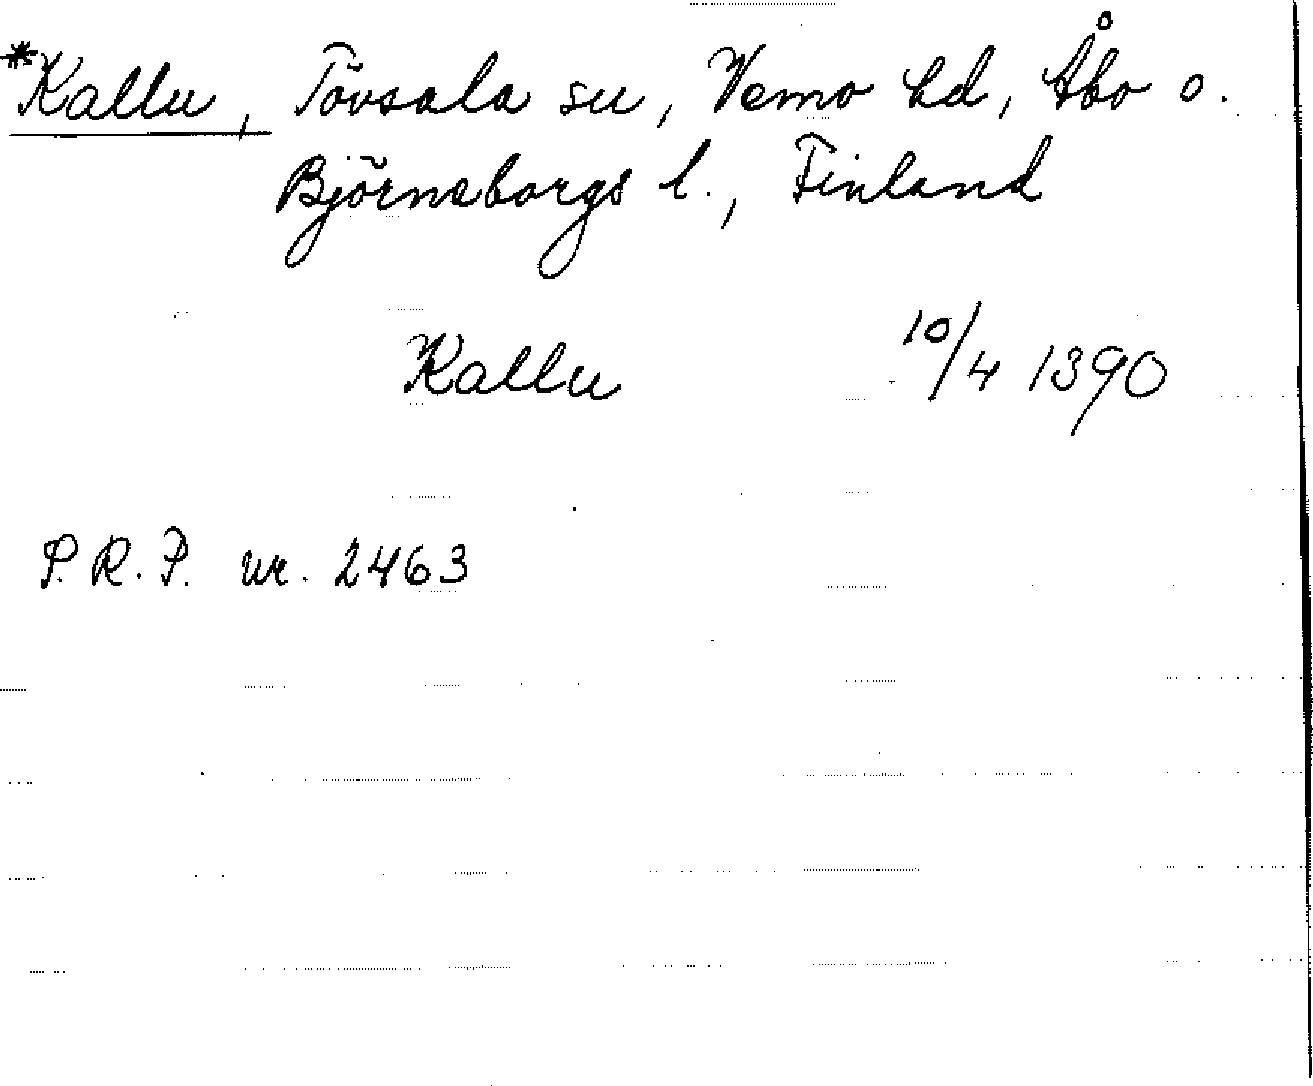 *Kallu, Tövsala sn, Vemo hd, Åbo o.
Björneborgs l., Finland
Kallu 10/4 1390
P.R.P. nr. 2463